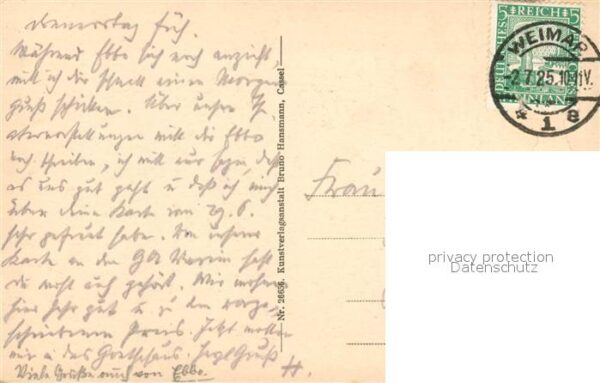 Donnerstag früh.
Während Ebbo sich noch anzieht,
will ich dir schnell einen Morgen-
gruß schicken. Über unsre
will dir Ebbo
noch schreiben, ich will nur sagen, daß
es uns gut geht u daß ich mich
über deine Karte vom 29.6.
sehr gefreut habe. Von unserer
Karte an den Verein hast
du wohl auch gehört. Wir wohnen
hier sehr gut u zu dem vorge-
schriebenen Preis. Jetzt wollen
wir in das Goethehaus. Herzl Gruß
H.
Viele Grüße auch von Ebbo.
Nr. 26656. Kunstverlagsanstalt Bruno Hansmann, Cassel
DEUTSCHES REICH
5 5
WEIMAR
-2.7.25.10-11V.
* 1 8
Frau
privacy protection
Datenschutz